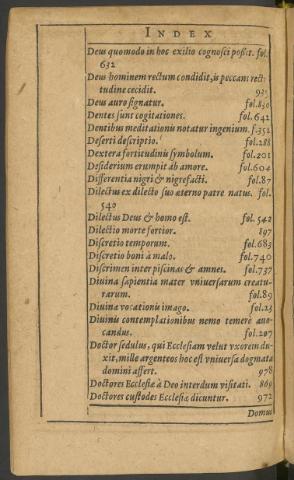 INDEX
Deus quomodo in hoc exilio cognoſci poßit. fol.
632
Deus hominem rectum condidit, is peccans recti-
tudine cecidit. 
Deus auro ſignatur. fol.830
Dentes ſunt cogitationes. fol.642
Dentibus meditationis notatur ingenium. f.352
Deſerti deſcriptio. fol.288
Dextera fortitudinis ſymbolum. fol.201
Deſiderium erumpit ab amore. fol.604
Differentia nigri & nigrefacti. fol.87
Dilectus ex dilecto ſuo æterno patre natus. fol.
540
Dilectus Deus & homo eſt. fol. 542
Dilectio morte fortior. 897
Diſcretio temporum. fol.683
Diſcretio boni à malo. fol.740
Diſcrimen inter piſcinas & amnes. fol.737
Diuina ſapientia mater vniuerſarum creatu-
rarum. fol.89
Diuina vocationis imago. fol.23
Diuinis contemplationibus nemo temerè auo-
candus. fol.207
Doctor ſedulus, qui Eccleſiam velut vxorem du-
xit, mille argenteos hoc eſt vniuerſa dogmata
domini aſſert. 978
Doctores Eccleſiæ à Deo interdum viſitati. 869
Doctores cuſtodes Eccleſiæ dicuntur. 972
Domus